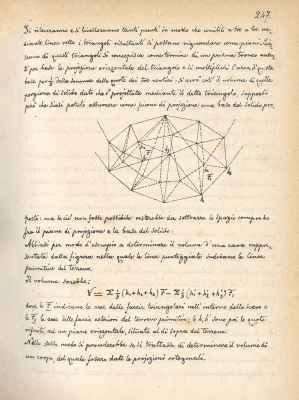 247.
Si rileveranno e si livelleranno tanti punti in modo che uniti a tre a tre, me-
diante linee rette i triangoli risultanti si possano riguardare come piani. Cia-
scuno di questi triangoli si considererà come termine di un prisma tronco avente
per base la proiezione orizzontale del triangolo e si moltiplichi l'area di questa
base per 1/3 della somma delle quote dei tre vertici; si avrà così il volume di quella
porzione di solido dato che è proiettata mediante il detto triangolo, supposto
però che siasi potuto assumere come piano di proiezione una base del solido pro-
F
h
posto: ma se ciò non fosse possibile resterebbe da sottrarre lo spazio compreso
fra il piano di proiezione e la base del solido.
Abbiasi per modo d'esempio a determinare il volume d'una cava rappre-
sentata dalla figura nella quale le linee punteggiate indicano le linee
primitive del terreno.
Il volume sarebbe:
V = Σ 1/3 (h₁+h₂+h₃) F − Σ 1/3 (h'₁+h'₂+h'₃) F₁
dove le F indicano le aree delle faccie triangolari nell'interno dello scavo e
le F₁ le aree delle faccie esteriori del terreno primitivo; le h, h' sono poi le quote
riferite ad un piano orizzontale, situato al di sopra del terreno.
Nello stesso modo si procederebbe se si trattasse di determinare il volume di
un corpo, del quale fossero date le proiezioni ortogonali.